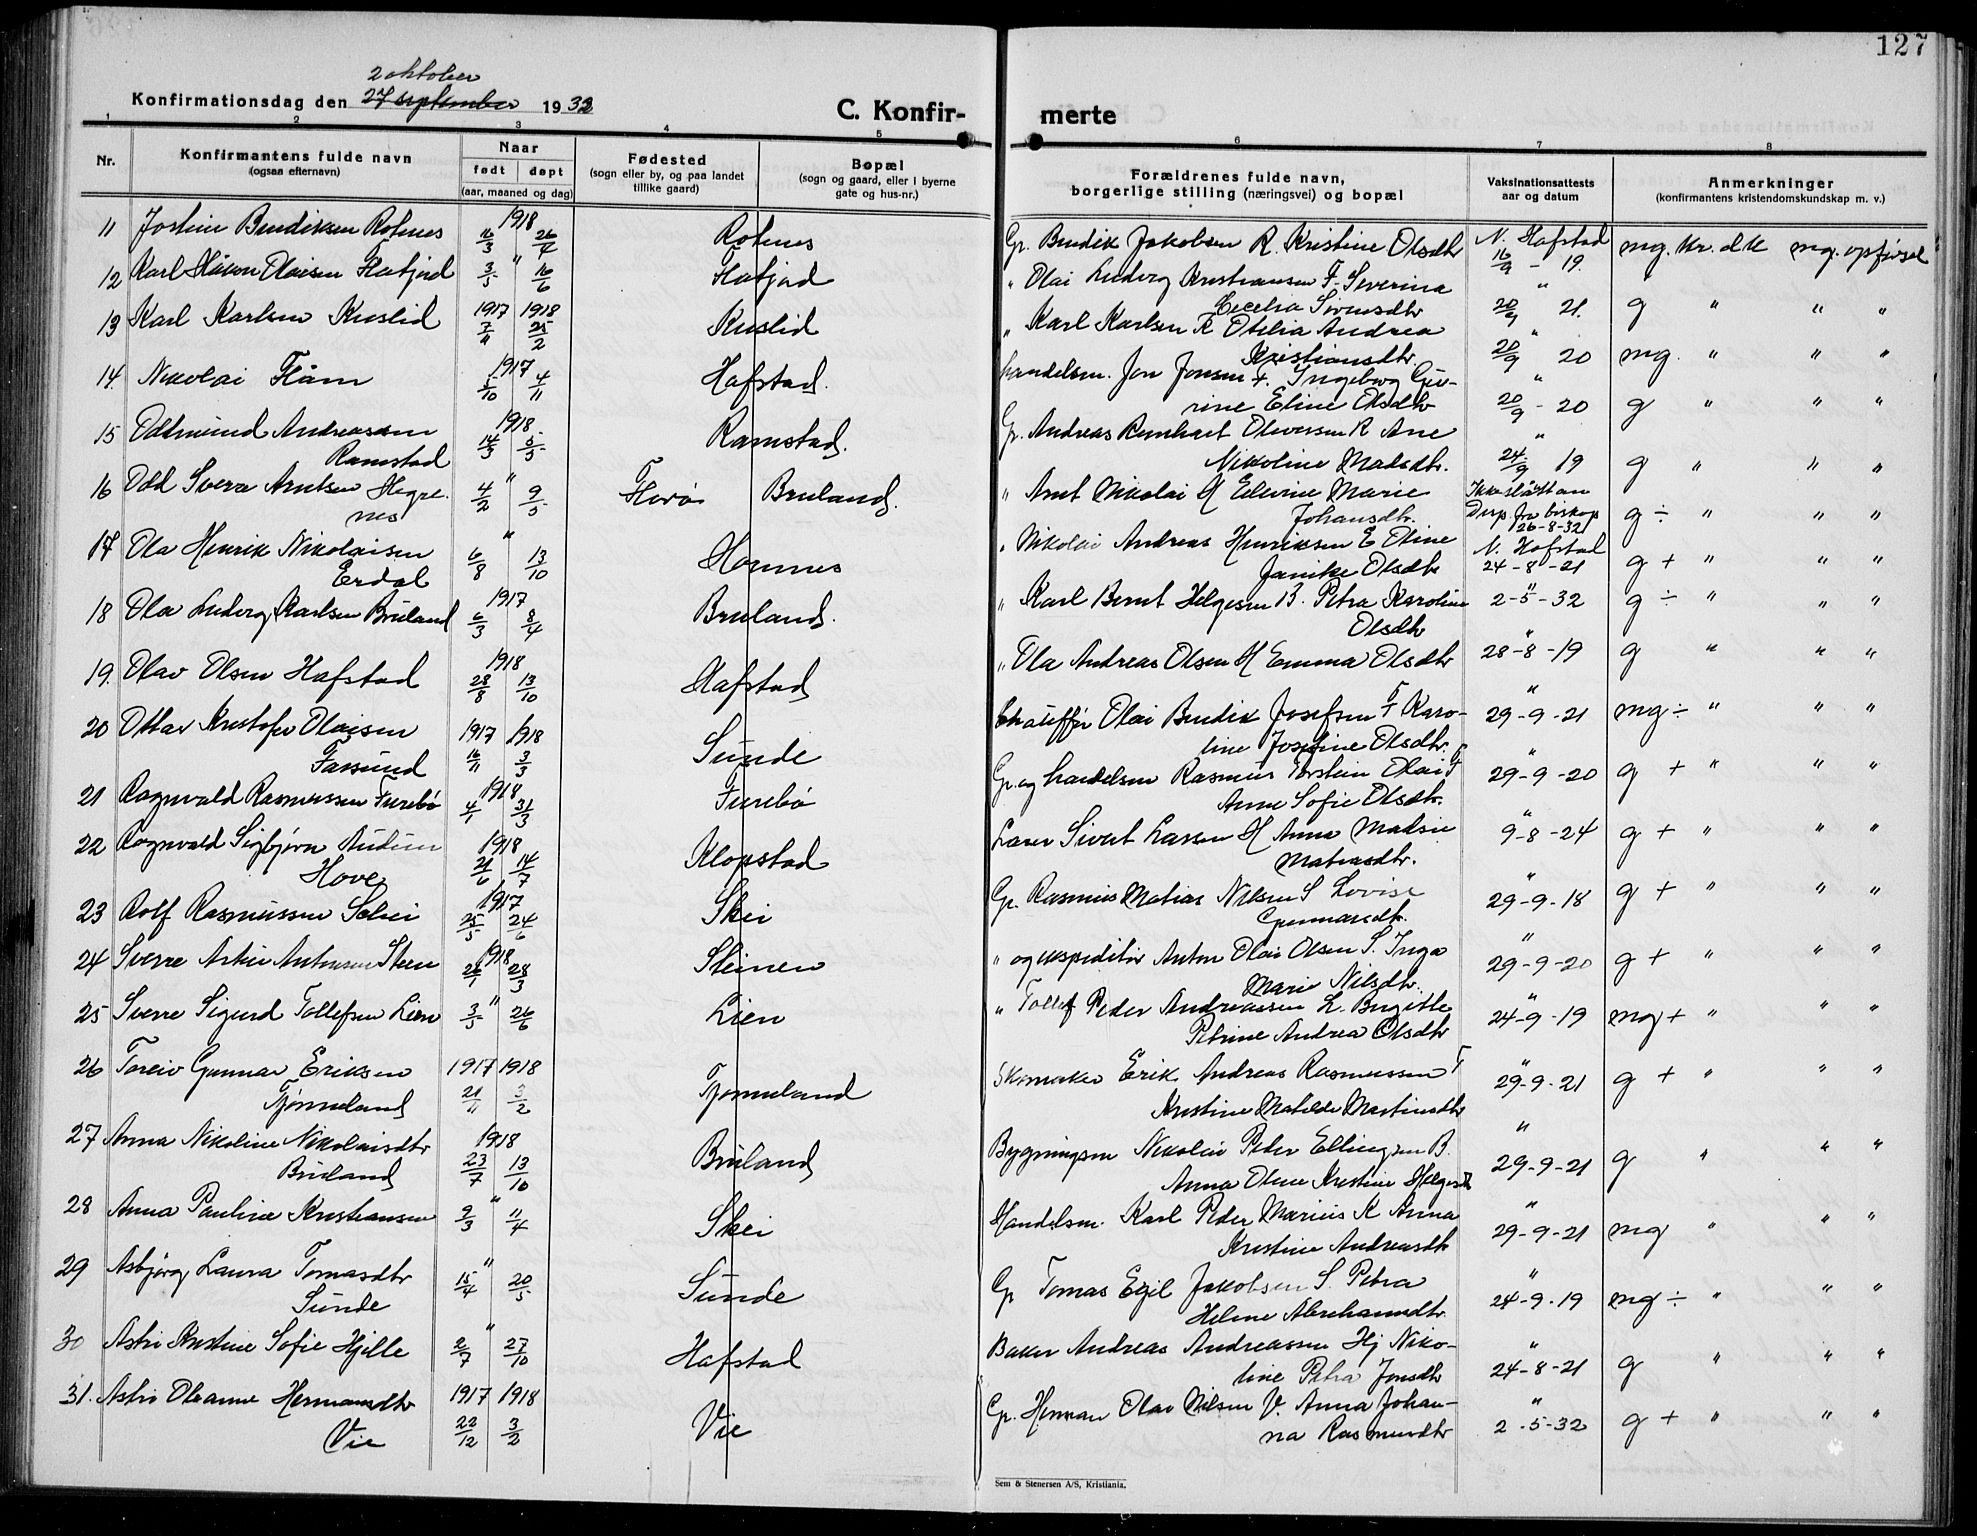 127
2 oktober
Konfirmationsdag den 27 september 1932
C. Konfir- merte
1 2 3 4 5 6 7 8
Nr.
Konfirmantens fulde navn
(ogsaa efternavn)
Naar
født døpt
(aar, maaned og dag)
Fødested
(sogn eller by, og paa landet
tillike gaard)
Bopæl
(sogn og gaard, eller i byerne
gate og hus-nr.)
Forældrenes fulde navn,
borgerlige stilling (næringsvei) og bopæl
Vaksinationsattests
aar og datum
Anmerkninger
(konfirmantens kristendomskundskap m. v.)
11 Jostein Bendiksen Rotnes 1918 16/3 26/4 Rotnes Gr. Bendik Jakobsen R. Kristine Olsdtr N. Hafstad 16/9 - 19. mg. kr. dk mg. opførsel
12 Karl Håkon Olaisen Flatjord " 3/5 16/6 Flatjord " Olai Ludvig Kristiansen F. Severina
Cecelia Sivertsdtr " 20/9 21. g " " "
13 Karl Karlsen Kuslid 1917 1918 7/11 25/2 Kuslid " Karl Karlsen K Otilia Andrea
Kristiansdtr " 20/9 20 mg. " " "
14. Nikolai Flåm 1917 5/10 4/11 Hafstad. handelsm. Jon Jonsen F. Ingeborg Gu-
rine Eline Olsdtr " 20/9 - 20 g " " "
15 Oddmund Andreassen
Ramstad 1918. 14/3 5/5 Ramstad. Gr. Andreas Reinhart Oliversen R Ane
Nikoline Madsdtr. " 24/9 19 g " " "
16 Odd Sverre Arntsen Hegre-
nes " 4/2 9/5 Florø Bruland. " Arnt Nikolai H Elevine Marie
Johansdtr. Ikke slått an
Disp. fra biskop
26-8-32 g ÷ " " "
17 Ola Henrik Nikolaisen
Erdal " 6/8 13/10 Hornnes " Nikolai Andreas Henriksen E Oline
Janike Olsdtr N. Hafstad
24-8-21 g + " " "
18 Ola Ludvig Karlsen Bruland 1917 6/3 8/4 Bruland. " Karl Bernt Helgesen B. Petra Karoline
Olsdtr " 2-5-32 g ÷ " " "
19. Olav Olsen Hafstad 1918 28/8 13/10 Hafstad " Ola Andreas Olsen H Emma Olsdtr " 28-8-19 g " " "
20 Ottar Kristofer Olaisen
Farsund 1917 1918 16/11 3/3 Sunde Chauffør Olai Bendik Josefsen F Karo-
line Josefine Olsdtr. " 29-9-21 mg ÷ " " "
21 Ragnvald Rasmussen Furebø 1918 4/1 31/3 Furebø Gr. og handelsm Rasmus Torstein Olai F
Anne Sofie Olsdtr. " 29-9-20 g + " " "
22 Ragnvald Sigbjørn Audun
Hove 1918 21/6 14/7 Klopstad Lærer Sivert Larsen H Anna Madsie
Matiasdtr. " 9-8-24 g + " " "
23 Rolf Rasmussen Schei 1917 25/5 24/6 Skei Gr. Rasmus Matias Nilsen S Lovise
Gunnarsdtr. " 29-9-18 g + " " "
24 Sverre Askil Antonsen Steen 1918 26/1 28/3 Steinen " og ekspeditør Anton Olai Olsen S. Inga
Marie Nilsdtr. " 29-9-20 g + " " "
25 Sverre Sigurd Tollefsen Lien " 3/5 26/6 Lien " Tollef Peder Andreassen L. Birgitte
Petrine Andrea Olsdtr " 24-9-19 mg + " " "
26 Toreiv Gunnar Eriksen
Tjønneland 1917 1918 21/11 3/2 Tjønneland Skomaker Erik Andreas Rasmussen T
Kristine Matilde Martinsdtr " 29-9-21 g + " " "
27 Anna Nikoline Nikolaisdtr
Bruland 1918 23/7 13/10 Bruland Bygningsm Nikolai Peder Ellingsen B.
Anna Oline Kristine Helgesdtr " 29-9-21 g " " "
28 Anna Pauline Kristiansen " 9/3 11/4 Skei Handelsm. Karl Peder Marius K Anna
Kristine Andreasdtr " 29-9-21 mg " " "
29 Asbjørg Laura Tomasdtr
Sunde " 15/4 20/5 Sunde Gr Tomas Egil Jakobsen S. Petra
Heline Abrahamsdtr. " 24-9-19 mg ÷ " " "
30 Astri Kristine Sofie Hjelle " 2/7 27/10 Hafstad Baker Andreas Andreassen Hj Niko-
line Petra Jonsdtr " 24-8-21 g " " "
31. Astri Oleanne Hermansdtr
Vie 1917 1918 22/12 3/2 Vie Gr. Herman Olai Nilsen V. Anna Johan-
na Rasmusdtr " 2-5-32 g + " " "
Sem & Stenersen A/S, Kristiania.